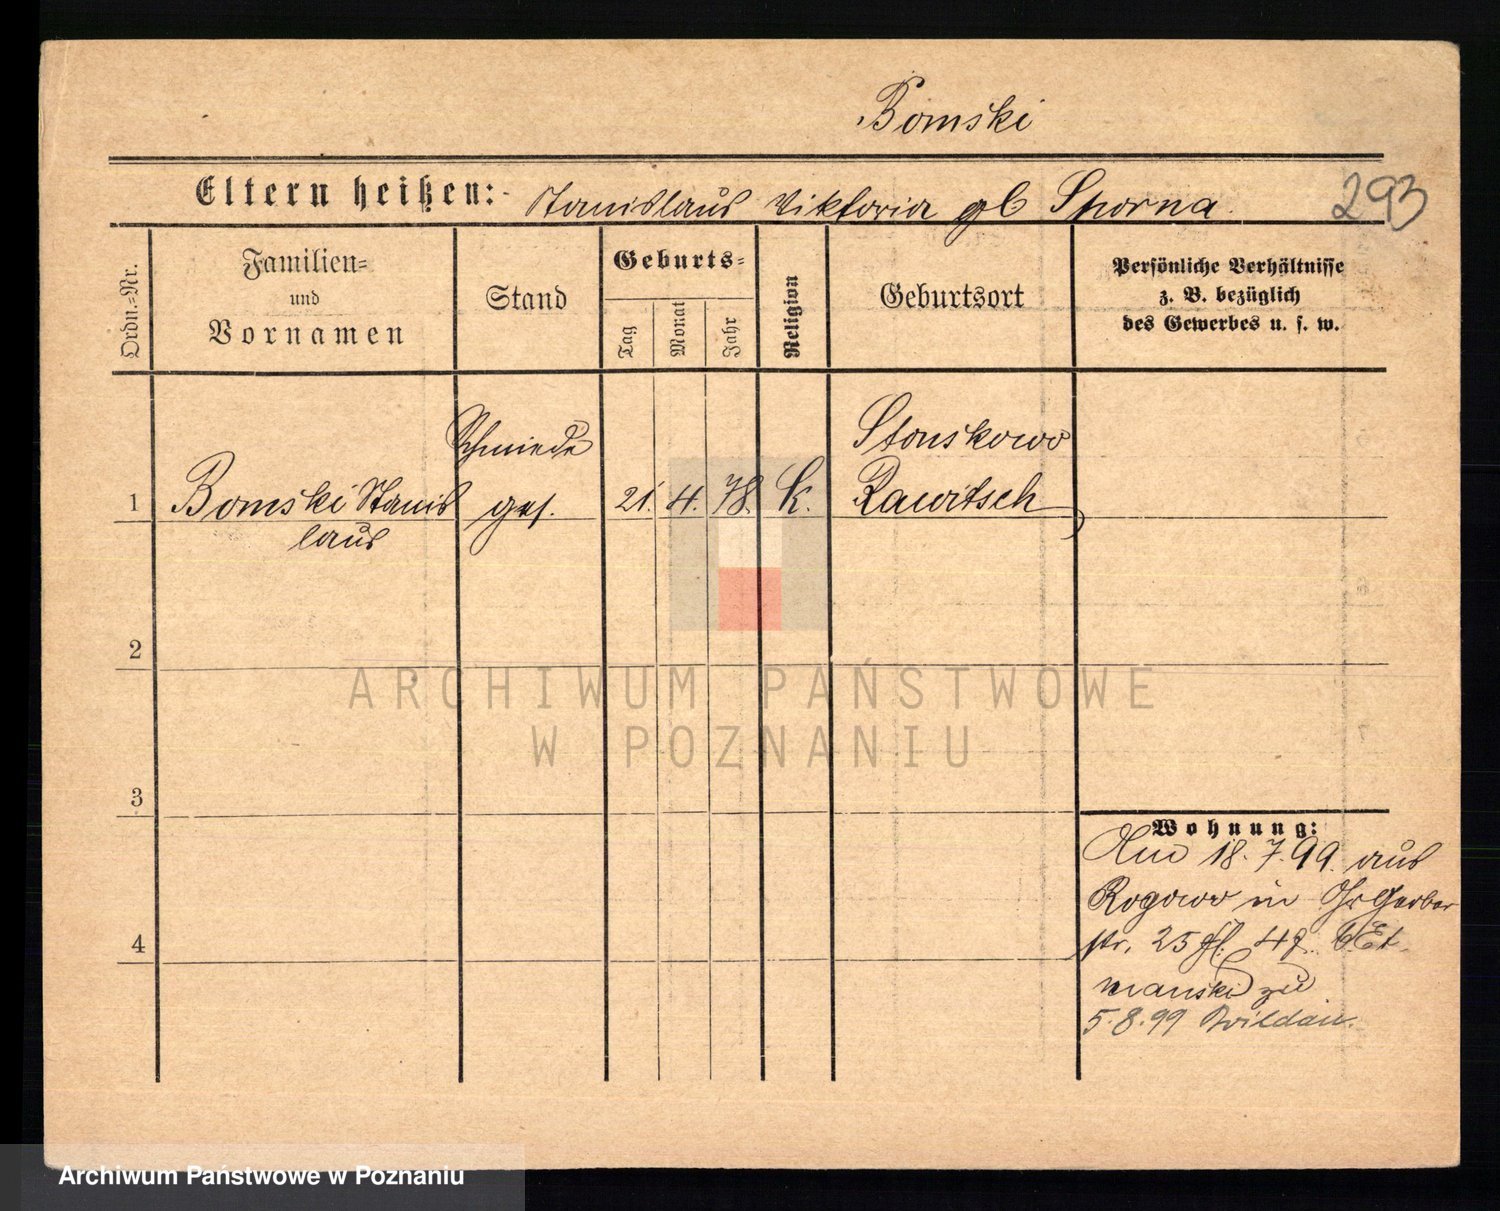 Bomski
Eltern heißen: Stanislaus Viktoria gb Sporna.
293
Ordn.-Nr.
Familien- und Vornamen
Stand
Geburts-
Tag
Monat
Jahr
Religion
Geburtsort
Persönliche Verhältnisse
z. B. bezüglich
des Gewerbes u. s. w.
1
Bomski Stanis
laus
Schmiede
ges.
21.
4.
78.
K.
Stonskowo
Rawitsch
2
3
4
Wohnung:
18.7.99. aus
Rogowo in Gr Gerber
str. 25 b. Et
manski zu
5.8.99 Wildau.
ARCHIWUM PAŃSTWOWE
W POZNANIU
Archiwum Państwowe w Poznaniu